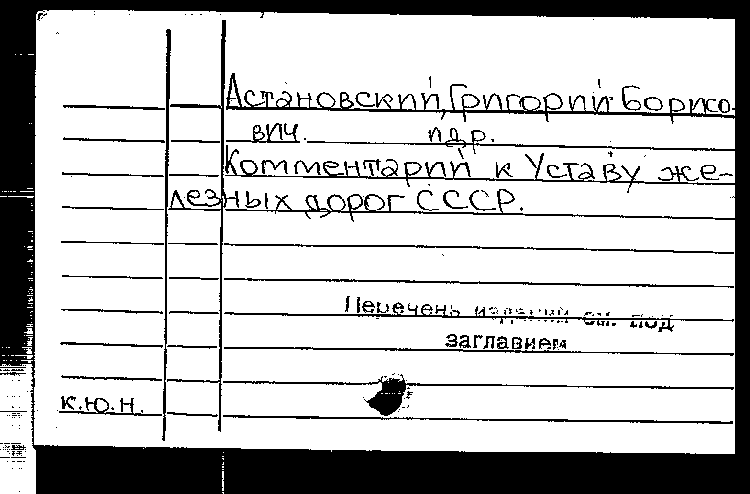 Астановский, Григорий Борисо-
вич. пдр.
Комментарий к Уставу же-
лезных дорог СССР.
Перечень изданий см. под
заглавием
К.Ю.Н.